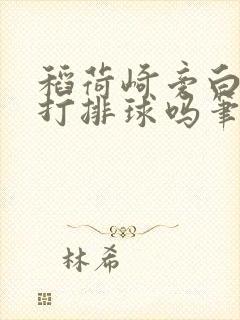 稻荷崎旁白
打排球吗笔
林希